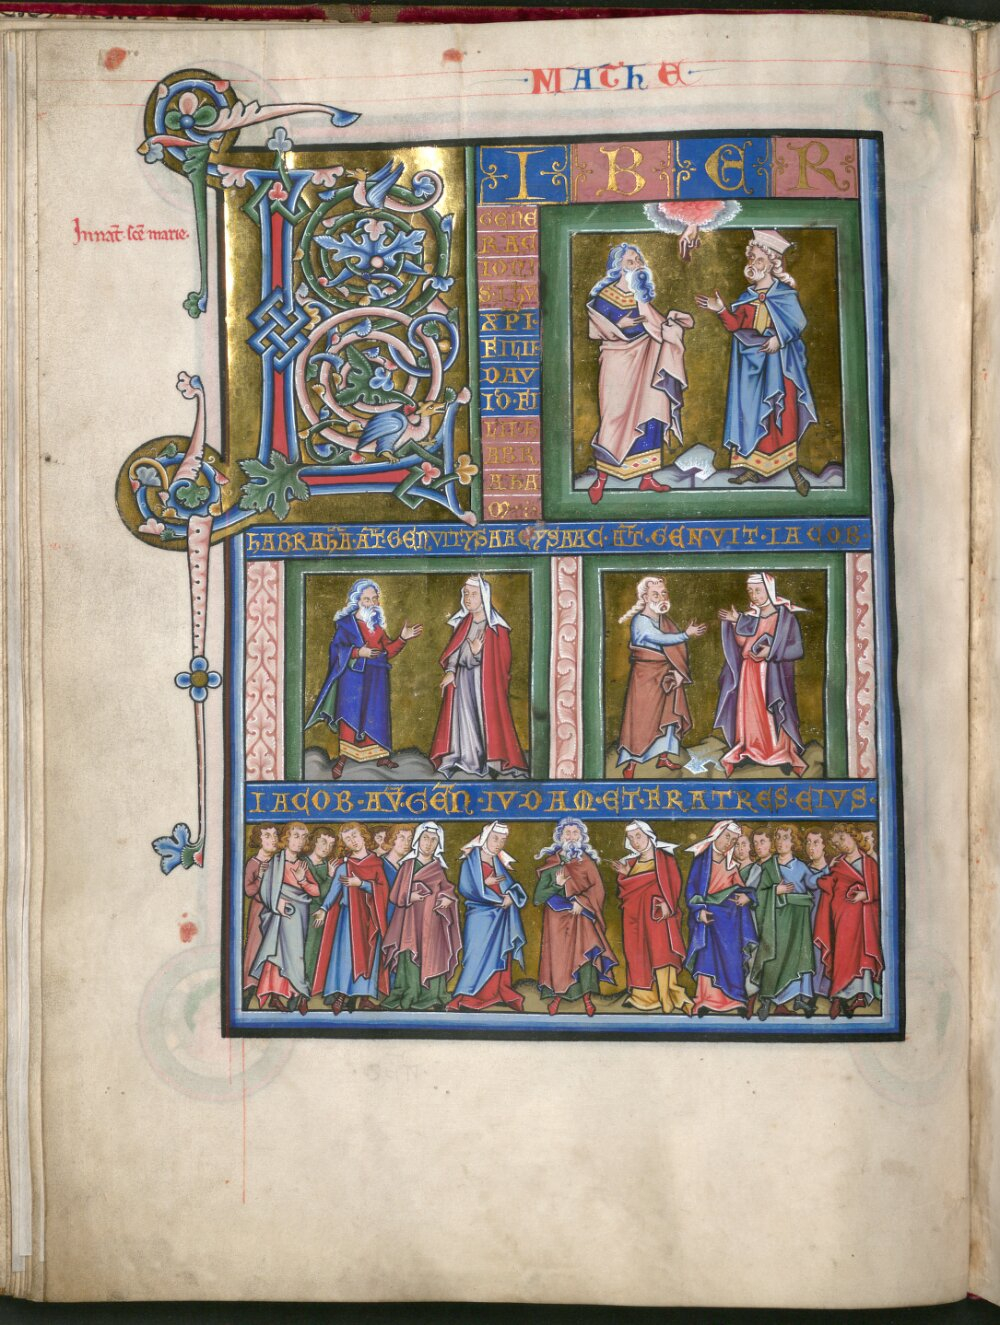 ·MATHE·
LIBER
In nat̄. sc̄e marie.
GENE
RAC
IONI
S·IHV
XPI·
FILII
DAV
ID·FI
LII·
ABR
AHA
M·
HABRAHĀ·AT̄·GENVIT YSAAC·YSAAC·AT̄·GENVIT·IACOB·
IACOB·AV̄·GEN̄·IVDAM·ET·FRATRES·EIVS·